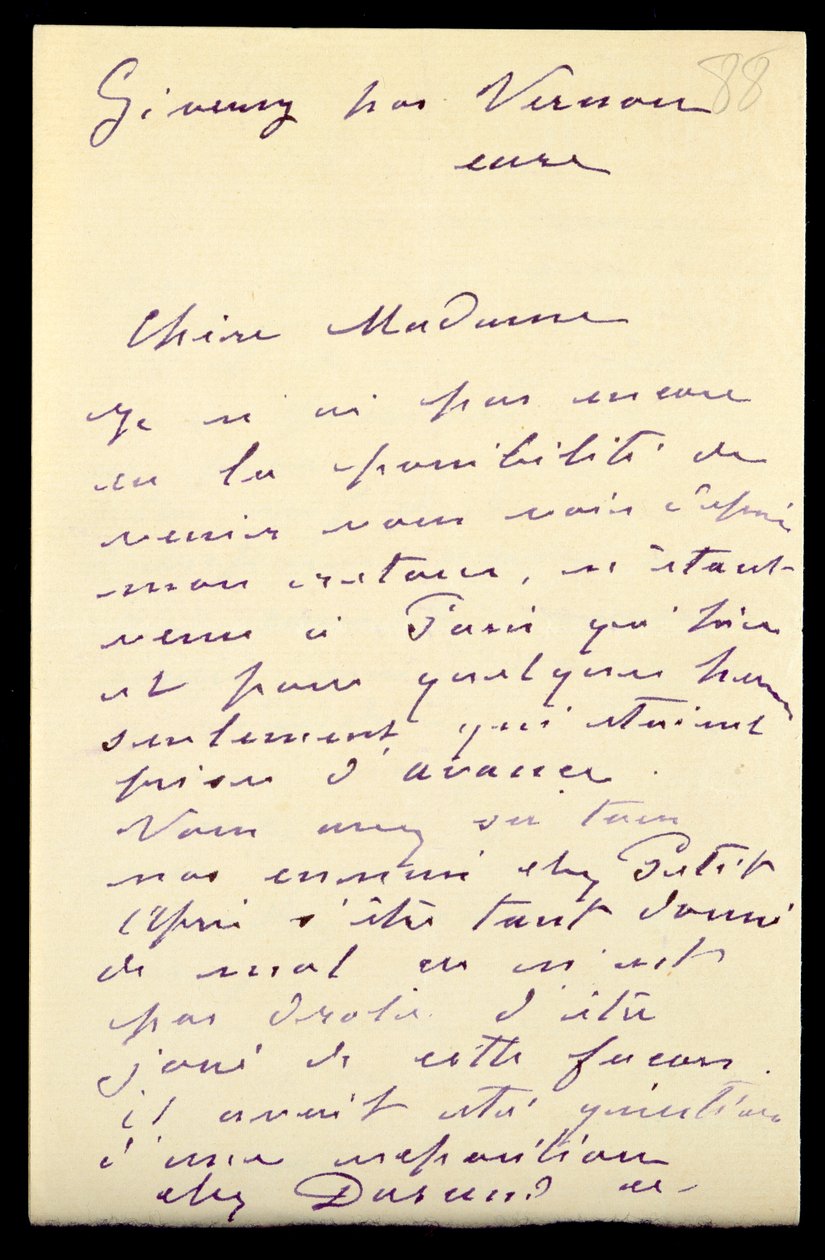 88
Giverny par Vernon
eure
Chère Madame
Je n'ai pas encore
eu la possibilité de
venir vous voir depuis
mon retour, n'étant
venu à Paris qu'hier
et pour quelques heures
seulement qui étaient
prises d'avance.
Vous avez su tous
nos ennuis chez Petit
après s'être tant donné
de mal ce n'est
pas drole d'être
joué de cette facon.
il avait été question
d'une exposition
chez Durand ce